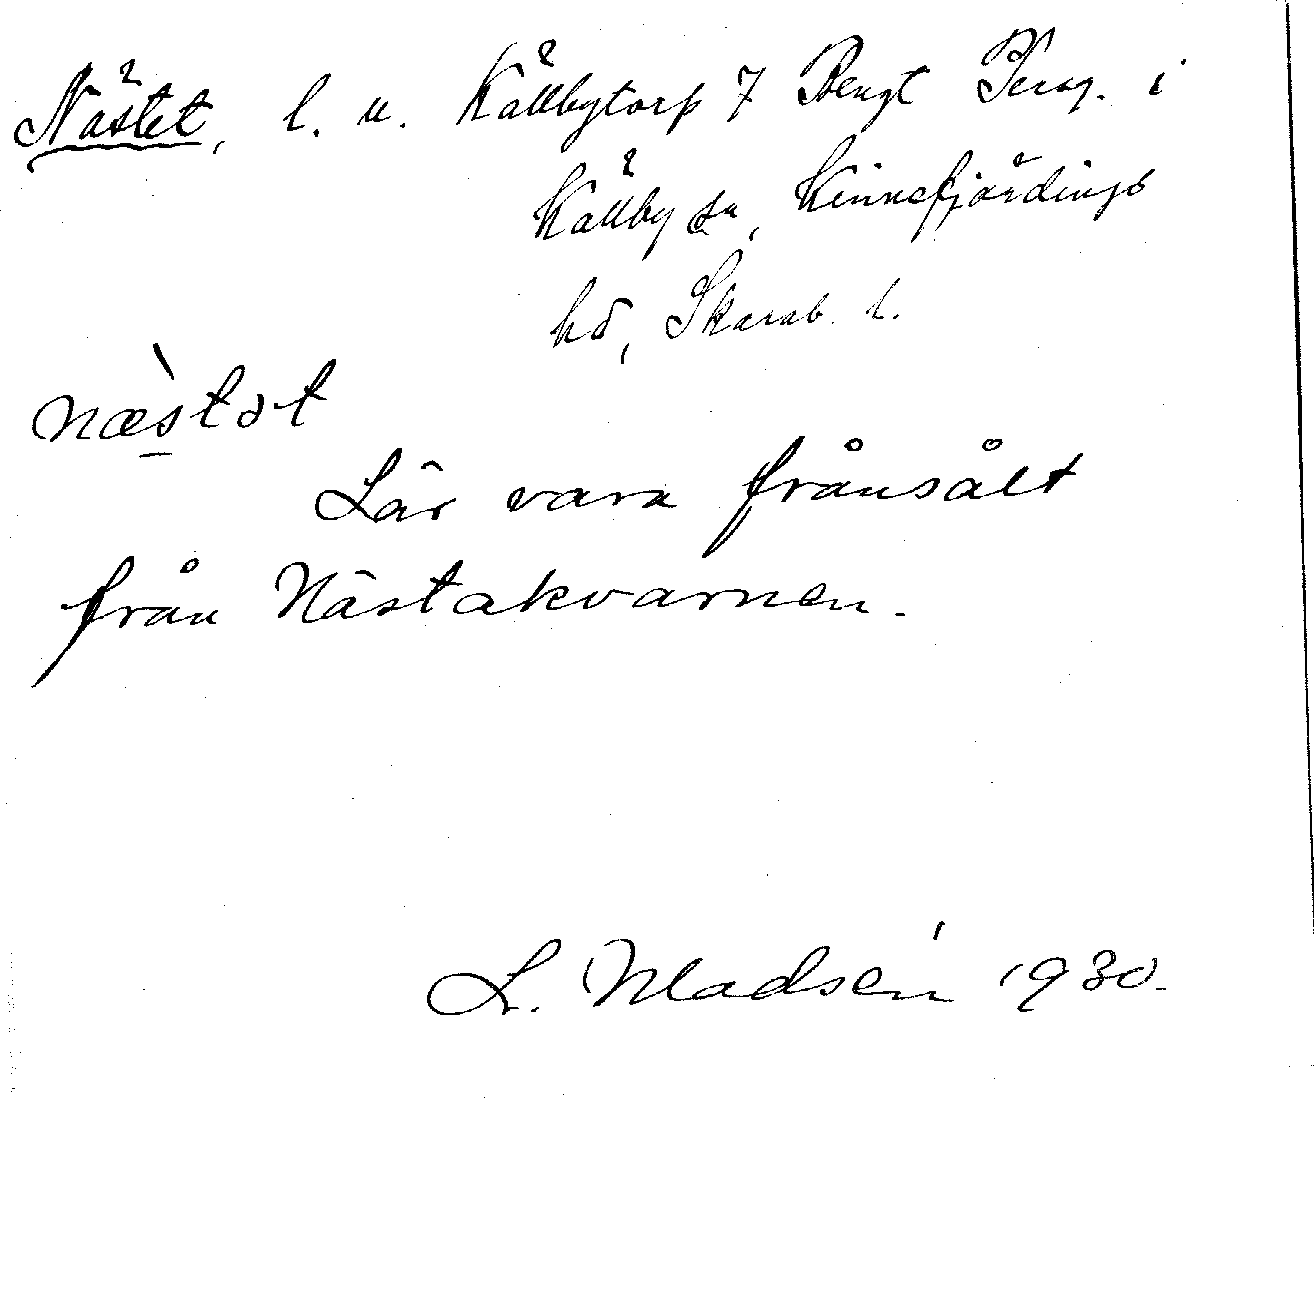 Nästet, l. u. Källbytorp 7 Bengt Persg. i
Källby sn, Kinnefjärdings
hd, Skarab. l.
næ̀stət
Lär vara frånsålt
från Nästakvarnen.
L. Madsén 1930.